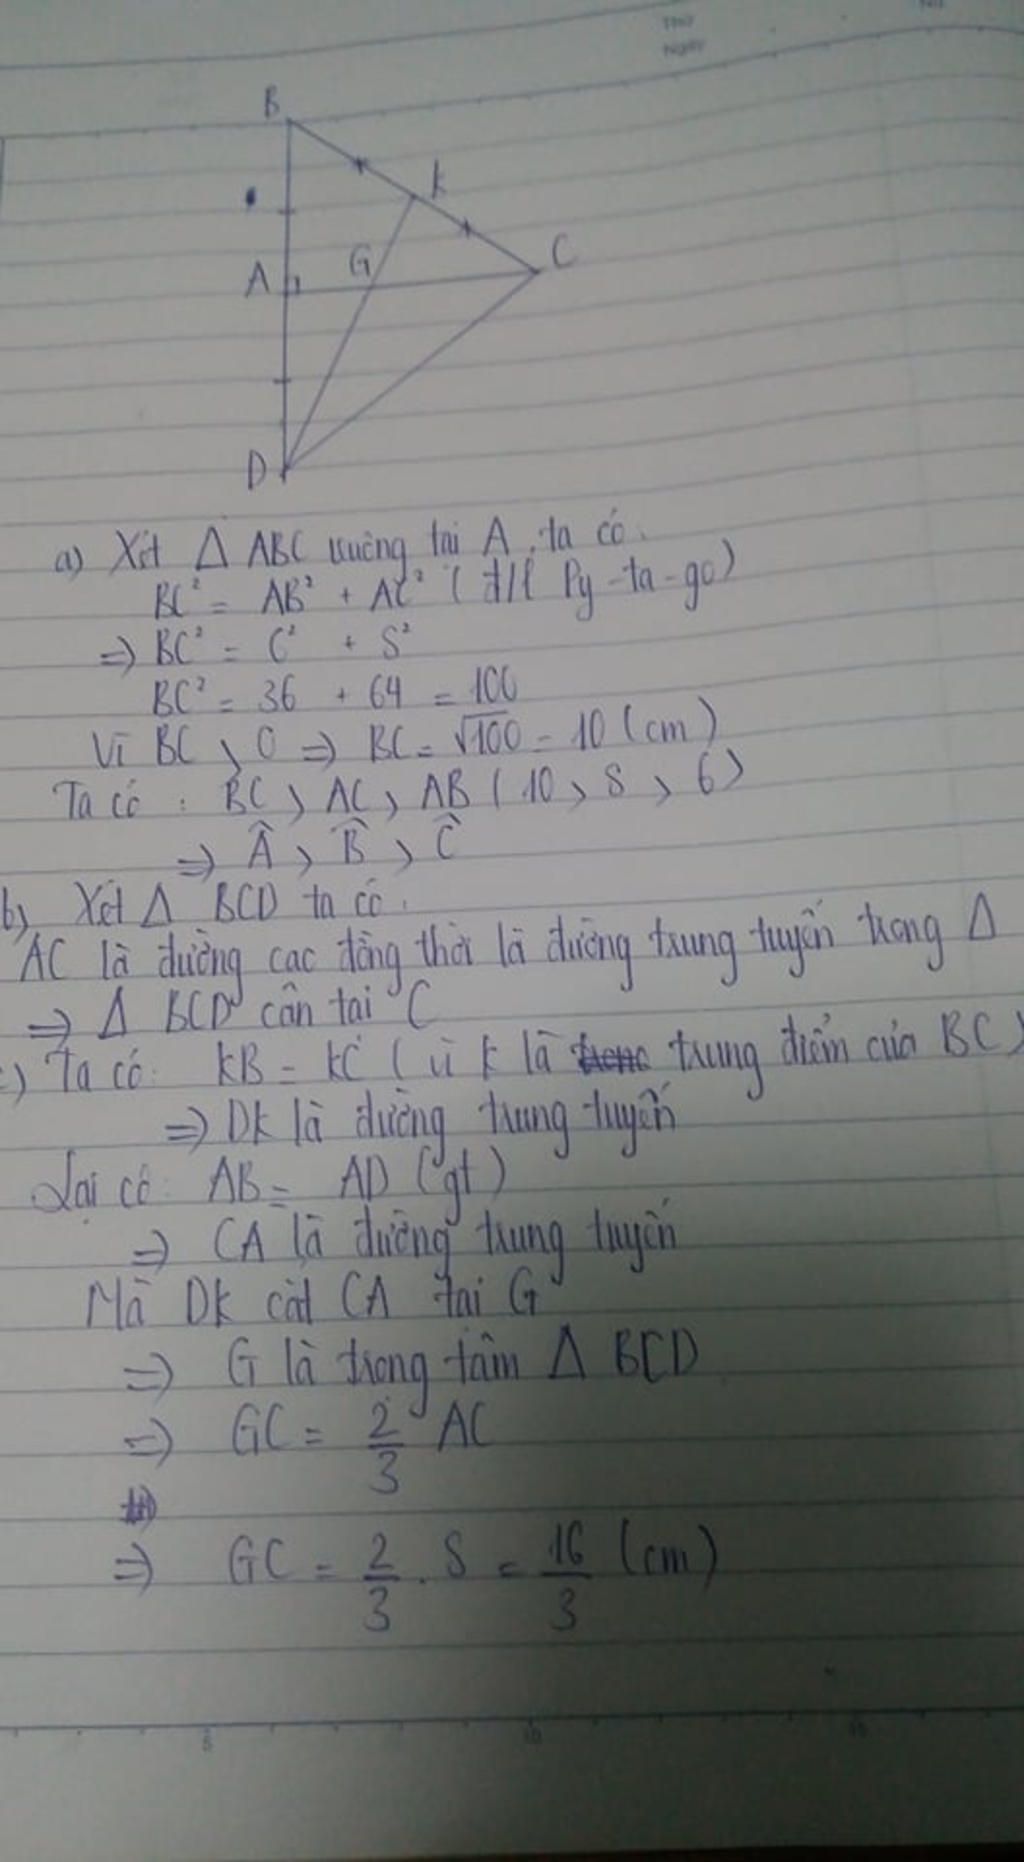 Thứ
Ngày
No
B
K
A
G
C
D
a) Xét Δ ABC vuông tại A, ta có.
BC² = AB² + AC² (đ/l Py-ta-go)
=> BC² = 6² + 8²
BC² = 36 + 64 = 100
Vì BC > 0 => BC = √100 = 10 (cm)
Ta có : BC > AC > AB (10 > 8 > 6)
=> Â > B̂ > Ĉ
b) Xét Δ BCD ta có.
AC là đường cao đồng thời là đường trung tuyến trong Δ
=> Δ BCD cân tại C
c) Ta có: KB = KC (vì K là trung điểm của BC)
=> DK là đường trung tuyến
Lại có: AB = AD (gt)
=> CA là đường trung tuyến
Mà DK cắt CA tại G
=> G là trọng tâm Δ BCD
=> GC = 2/3 AC
=> GC = 2/3 . 8 = 16/3 (cm)
5 10 15